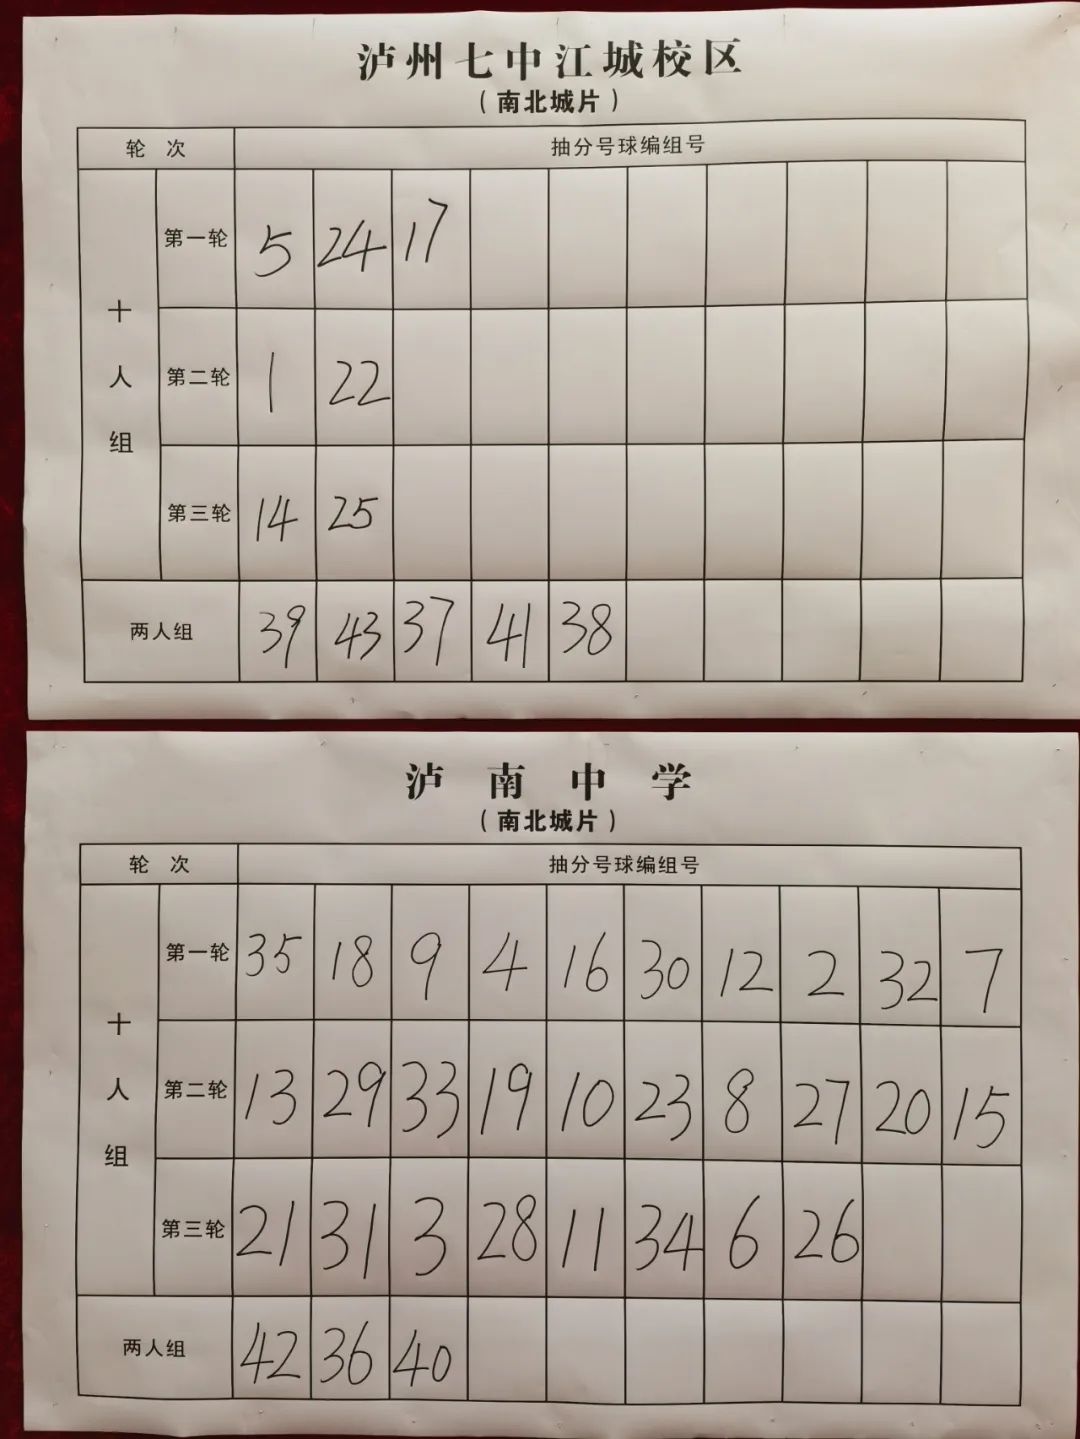 泸州七中江城校区
（南北城片）
轮 次 抽分号球编组号
十人组
第一轮 5 24 17
第二轮 1 22
第三轮 14 25
两人组 39 43 37 41 38
泸南中学
（南北城片）
轮 次 抽分号球编组号
十人组
第一轮 35 18 9 4 16 30 12 2 32 7
第二轮 13 29 33 19 10 23 8 27 20 15
第三轮 21 31 3 28 11 34 6 26
两人组 42 36 40